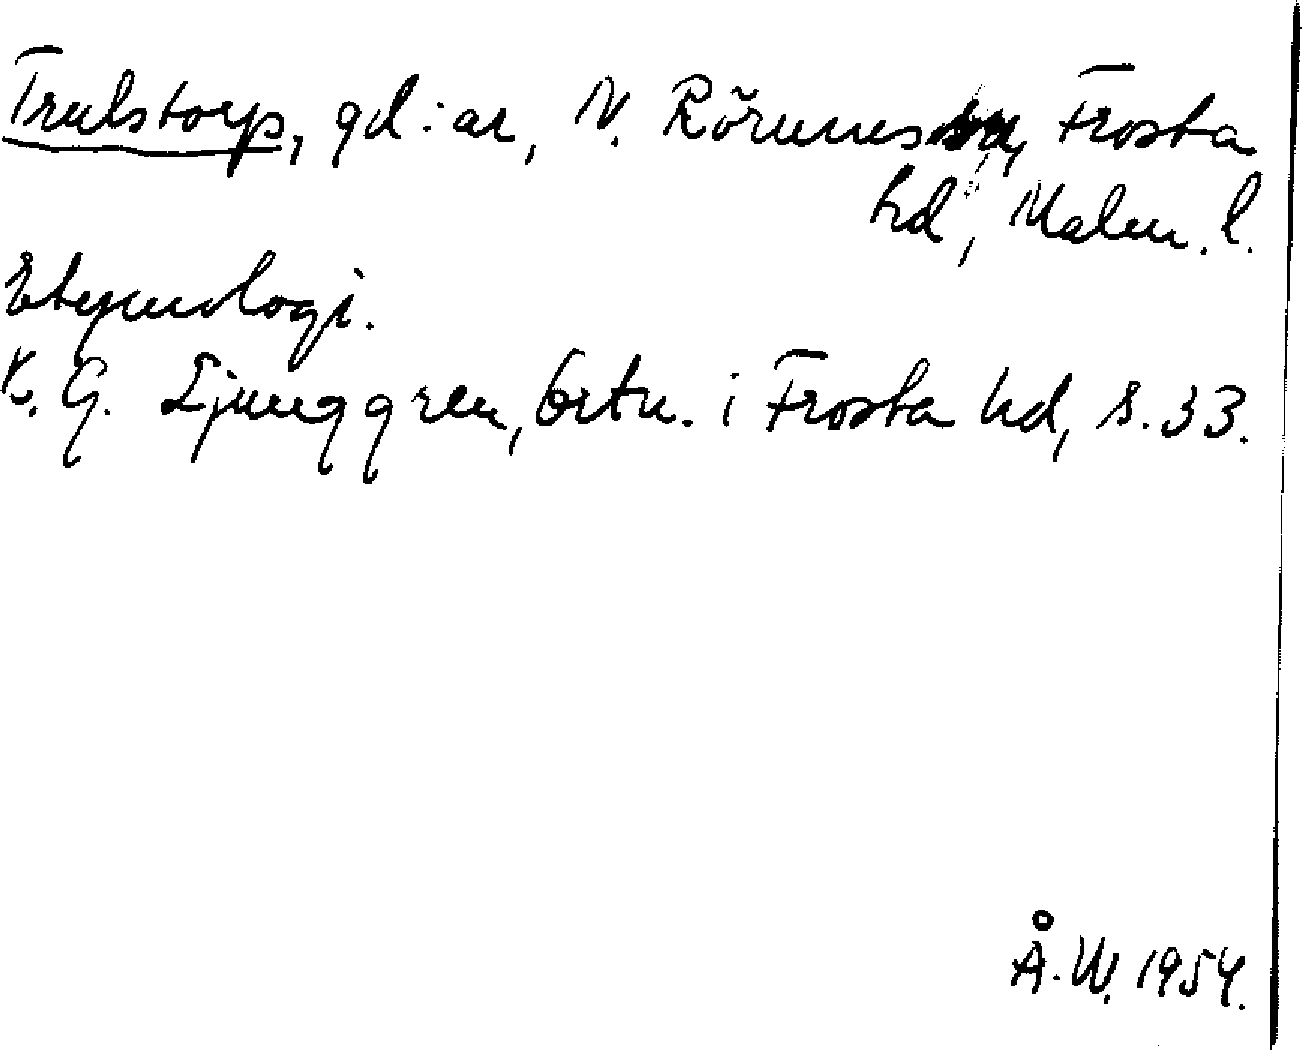 Trulstorp, gd:ar, N. Rörums sn, Frosta
hd, Malm. l.
Etymologi.
K. G. Ljunggren, Ortn. i Frosta hd, s. 33.
Å. W. 1954.